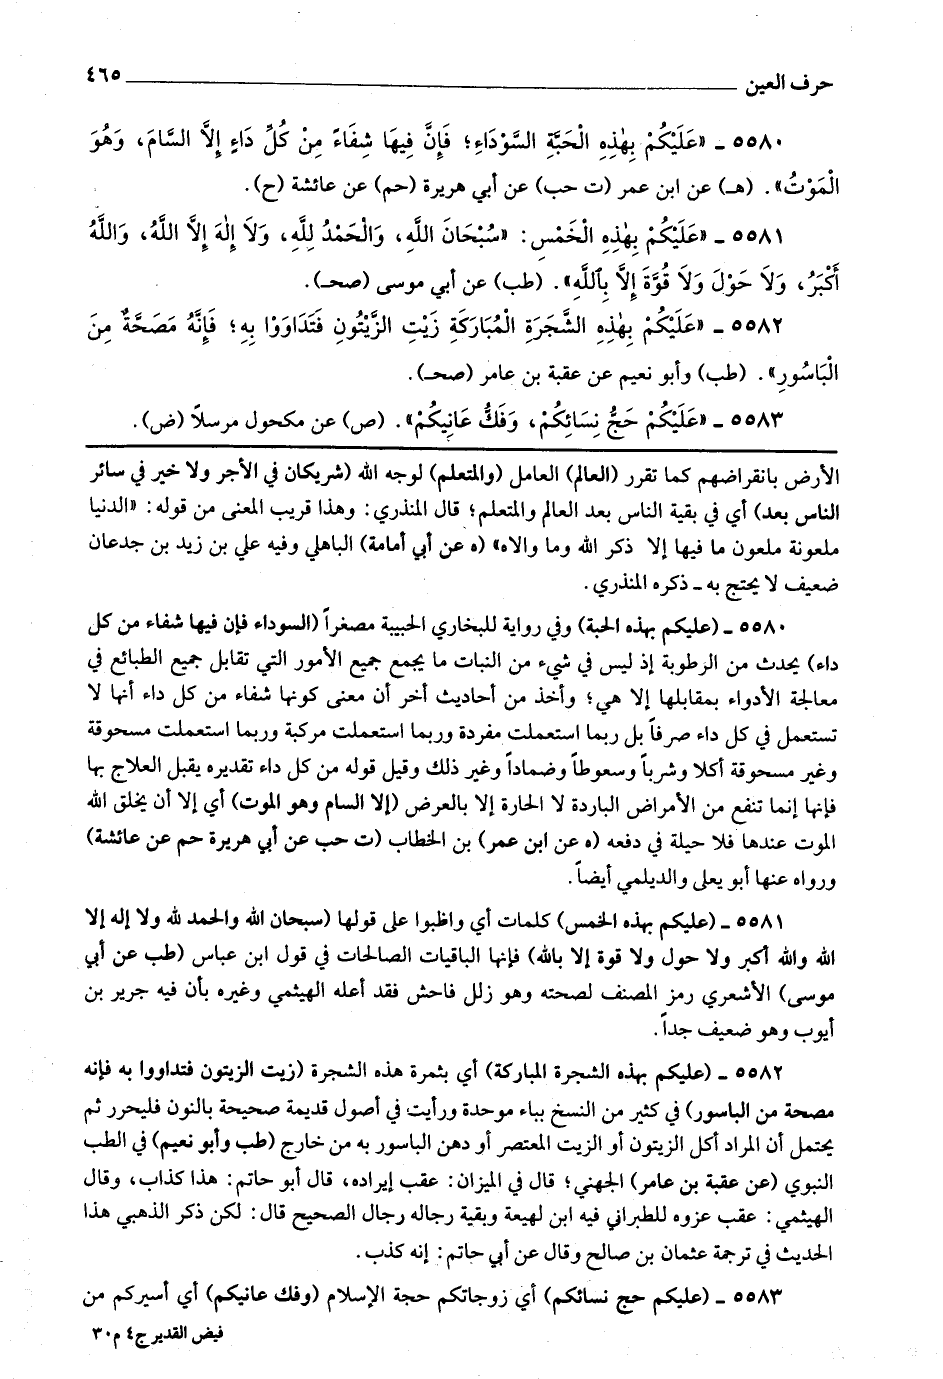 حرف العين ٤٦٥
٥٥٨٠ ـ «عَلَيْكُمْ بِهٰذِهِ الْحَبَّةِ السَّوْدَاءِ؛ فَإِنَّ فِيهَا شِفَاءً مِنْ كُلِّ دَاءٍ إِلَّا السَّامَ، وَهُوَ
الْمَوْتُ». (هـ) عن ابن عمر (ت حب) عن أبي هريرة (حم) عن عائشة (ح).
٥٥٨١ ـ «عَلَيْكُمْ بِهٰذِهِ الْخَمْسِ: «سُبْحَانَ اللَّهِ، وَالْحَمْدُ لِلَّهِ، وَلَا إِلٰهَ إِلَّا اللَّهُ، وَاللَّهُ
أَكْبَرُ، وَلَا حَوْلَ وَلَا قُوَّةَ إِلَّا بِٱللَّهِ». (طب) عن أبي موسى (صحـ).
٥٥٨٢ ـ «عَلَيْكُمْ بِهٰذِهِ الشَّجَرَةِ الْمُبَارَكَةِ زَيْتِ الزَّيْتُونِ فَتَدَاوَوْا بِهِ؛ فَإِنَّهُ مَصَحَّةٌ مِنَ
الْبَاسُورِ». (طب) وأبو نعيم عن عقبة بن عامر (صحـ).
٥٥٨٣ ـ «عَلَيْكُمْ حَجُّ نِسَائِكُمْ، وَفَكُّ عَانِيكُمْ». (ص) عن مكحول مرسلاً (ض).
الأرض بانقراضهم كما تقرر (العالم) العامل (والمتعلم) لوجه الله (شريكان في الأجر ولا خير في سائر
الناس بعد) أي في بقية الناس بعد العالم والمتعلم؛ قال المنذري: وهذا قريب المعنى من قوله: «الدنيا
ملعونة ملعون ما فيها إلا ذكر الله وما والاه» (ه عن أبي أمامة) الباهلي وفيه علي بن زيد بن جدعان
ضعيف لا يحتج به ـ ذكره المنذري.
٥٥٨٠ ـ (عليكم بهذه الحبة) وفي رواية للبخاري الحبيبة مصغراً (السوداء فإن فيها شفاء من كل
داء) يحدث من الرطوبة إذ ليس في شيء من النبات ما يجمع جميع الأمور التي تقابل جميع الطبائع في
معالجة الأدواء بمقابلها إلا هي؛ وأخذ من أحاديث أخر أن معنى كونها شفاء من كل داء أنها لا
تستعمل في كل داء صرفاً بل ربما استعملت مفردة وربما استعملت مركبة وربما استعملت مسحوقة
وغير مسحوقة أكلا وشرباً وسعوطاً وضماداً وغير ذلك وقيل قوله من كل داء تقديره يقبل العلاج بها
فإنها إنما تنفع من الأمراض الباردة لا الحارة إلا بالعرض (إلا السام وهو الموت) أي إلا أن يخلق الله
الموت عندها فلا حيلة في دفعه (ه عن ابن عمر) بن الخطاب (ت حب عن أبي هريرة حم عن عائشة)
ورواه عنها أبو يعلى والديلمي أيضاً.
٥٥٨١ ـ (عليكم بهذه الخمس) كلمات أي واظبوا على قولها (سبحان الله والحمد لله ولا إله إلا
الله والله أكبر ولا حول ولا قوة إلا بالله) فإنها الباقيات الصالحات في قول ابن عباس (طب عن أبي
موسى) الأشعري رمز المصنف لصحته وهو زلل فاحش فقد أعله الهيثمي وغيره بأن فيه جرير بن
أيوب وهو ضعيف جداً.
٥٥٨٢ ـ (عليكم بهذه الشجرة المباركة) أي بثمرة هذه الشجرة (زيت الزيتون فتداووا به فإنه
مصحة من الباسور) في كثير من النسخ بباء موحدة ورأيت في أصول قديمة صحيحة بالنون فليحرر ثم
يحتمل أن المراد أكل الزيتون أو الزيت المعتصر أو دهن الباسور به من خارج (طب وأبو نعيم) في الطب
النبوي (عن عقبة بن عامر) الجهني؛ قال في الميزان: عقب إيراده، قال أبو حاتم: هذا كذاب، وقال
الهيثمي: عقب عزوه للطبراني فيه ابن لهيعة وبقية رجاله رجال الصحيح قال: لكن ذكر الذهبي هذا
الحديث في ترجمة عثمان بن صالح وقال عن أبي حاتم: إنه كذب.
٥٥٨٣ ـ (عليكم حج نسائكم) أي زوجاتكم حجة الإسلام (وفك عانيكم) أي أسيركم من
فيض القدير ج٤ م٣٠